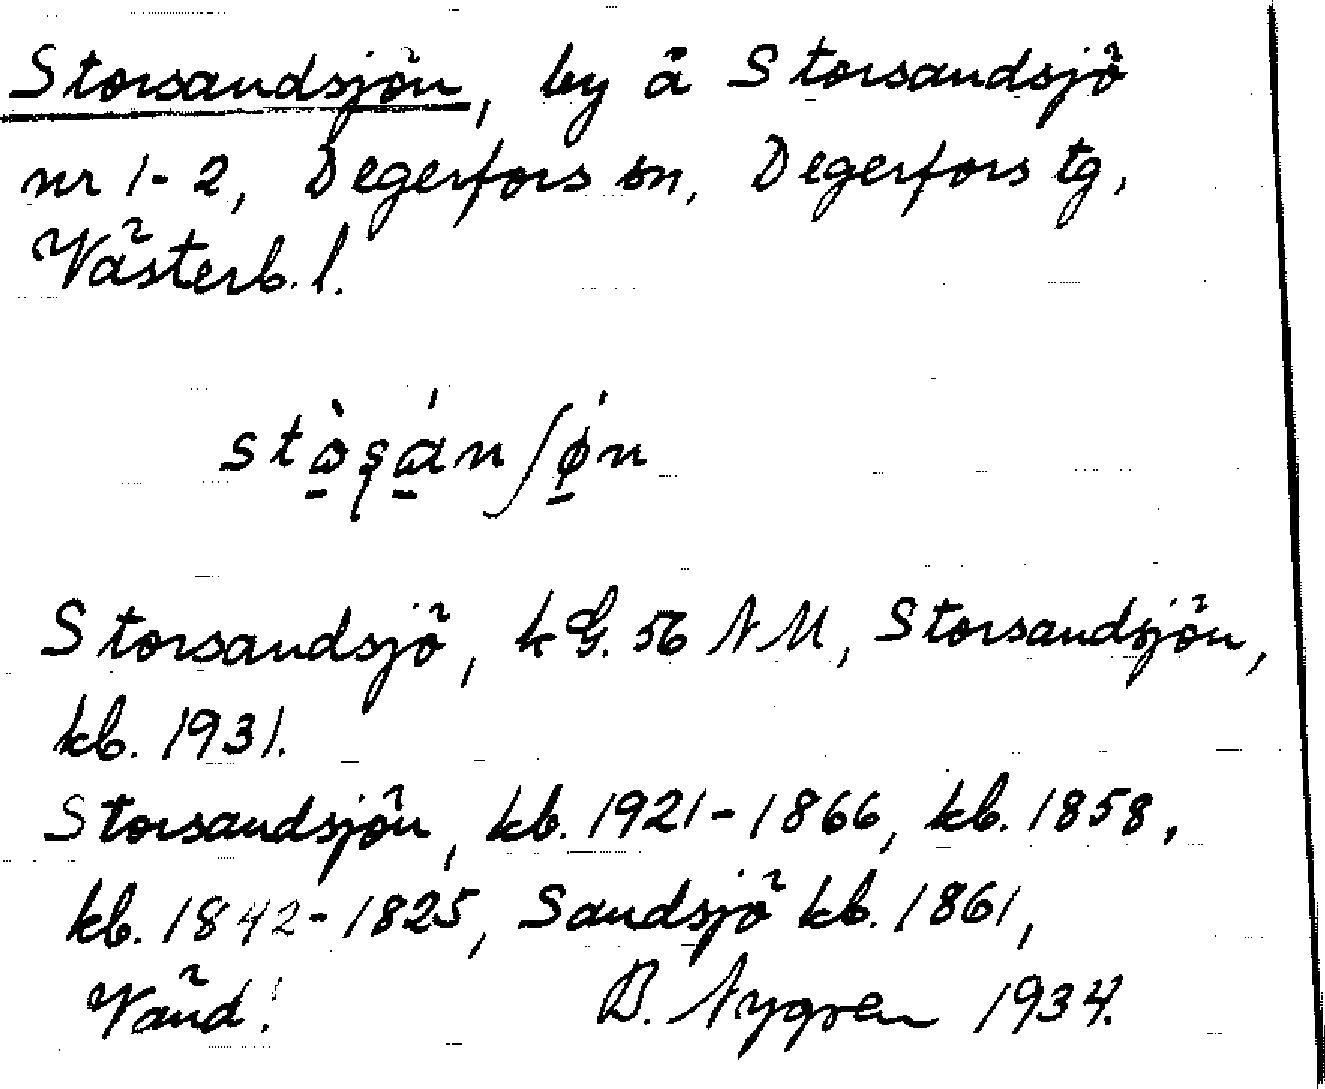 Storsandsjön, by å Storsandsjö
nr 1-2, Degerfors sn, Degerfors tg,
Västerb. l.
Storsandsjö, kG. 56 NM, Storsandsjön,
kb. 1931.
Storsandsjön, kb. 1921-1866, kb. 1858,
kb. 1842-1825, Sandsjö kb. 1861,
Vänd!
B. Nygren 1934.